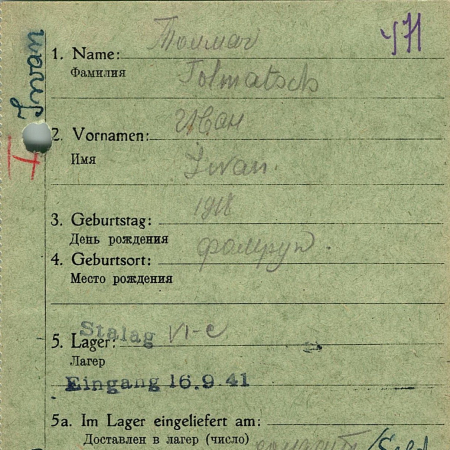 Iwan
471
Толмач
1. Name:
Фамилия
Tolmatsch
Иван
2. Vornamen:
Имя
Iwan.
1918
3. Geburtstag:
День рождения
4. Geburtsort:
Место рождения
Stalag VI-C
5. Lager:
Лагер
Eingang 16.9.41
5a. Im Lager eingeliefert am:
Доставлен в лагер (число)